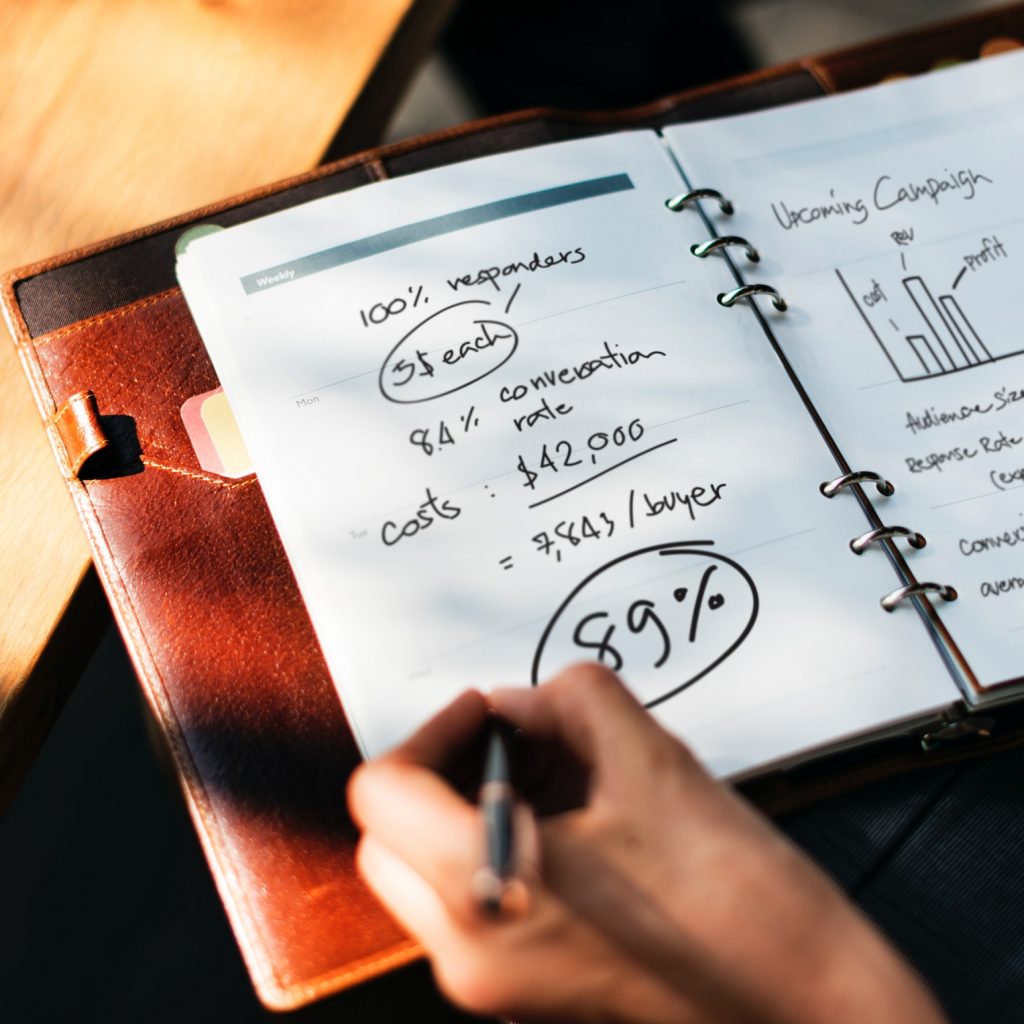 Weekly
100% responders
5$ each
Mon
8.4% converation
rate
Tue
costs : $42,000
= 7,843 /buyer
Wed
89%
Upcoming Campaign
Rev
Profit
cost
Audience Size
Response Rate